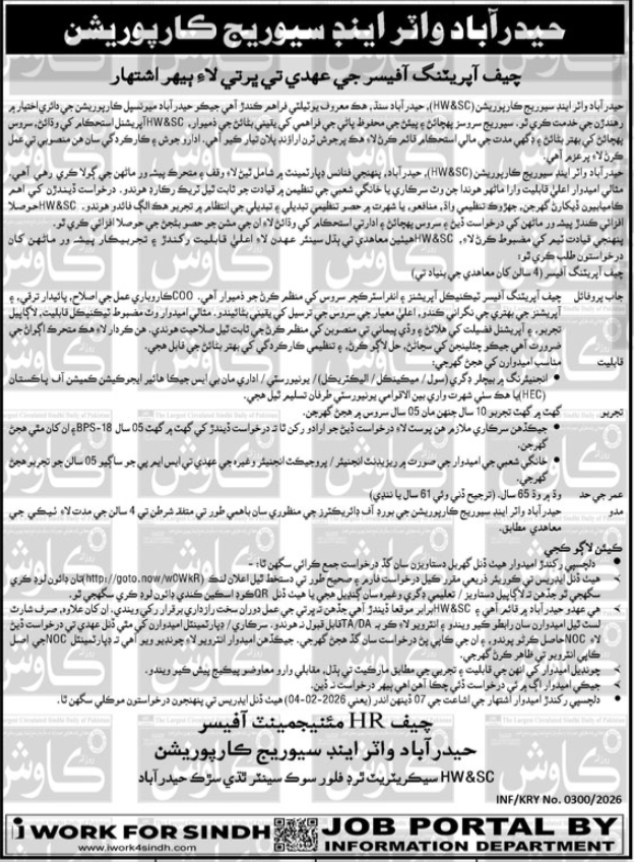 حيدرآباد واٽر اينڊ سيوريج ڪارپوريشن
چيف آپريٽنگ آفيسر جي عهدي تي ڀرتي لاءِ ٻيهر اشتهار
حيدرآباد واٽر اينڊ سيوريج ڪارپوريشن (HW&SC)، حيدرآباد سنڌ، هڪ معروف يوٽيلٽي فراهم ڪندڙ آهي جيڪو حيدرآباد ميونسپل ڪارپوريشن جي دائري اختيار ۾
رهندڙن جي خدمت ڪري ٿو. سيوريج سروسز پهچائڻ ۽ پيئڻ جي محفوظ پاڻي جي فراهمي کي يقيني بڻائڻ جي ذميوار، HW&SC آپريشنل استحڪام کي وڌائڻ، سروس
پهچائڻ کي بهتر بڻائڻ ۽ ڊگهي مدت جي مالي استحڪام قائم ڪرڻ لاءِ هڪ پرجوش ٽرن آرائونڊ پلان تيار ڪيو آهي. ادارو جوش ۽ ڪارڪردگي سان هن منصوبي تي عمل
ڪرڻ لاءِ پرعزم آهي.
حيدرآباد واٽر اينڊ سيوريج ڪارپوريشن (HW&SC)، حيدرآباد، پنهنجي فنانس ڊپارٽمينٽ ۾ شامل ٿيڻ لاءِ وقف ۽ متحرڪ پيشه ور ماڻهن جي ڳولا ڪري رهي آهي.
مثالي اميدوار اعليٰ قابليت وارا ماڻهو هوندا جن وٽ سرڪاري يا خانگي شعبي جي تنظيمن ۾ قيادت جو ثابت ٿيل ٽريڪ رڪارڊ هوندو. درخواست ڏيندڙن کي اهم
ڪاميابيون ڏيکارڻ گهرجن، جهڙوڪ تنظيمي واڌ، منافعو، يا شهرت ۾ حصر تنظيمي تبديلي ۽ تبديلي جي انتظام ۾ تجربو هڪ الڳ فائدو هوندو. HW&SC حوصلا
افزائي ڪندڙ پيشه ور ماڻهن کي درخواست ڏيڻ ۽ سروس پهچائڻ ۽ ادارتي استحڪام کي وڌائڻ لاءِ ان جي مشن جو حصو بڻجڻ جي حوصلا افزائي ڪري ٿو.
پنهنجي قيادت ٽيم کي مضبوط ڪرڻ لاءِ، HW&SC هيٺين معاهدي تي ٻڌل سينئر عهدن لاءِ اعليٰ قابليت رکندڙ ۽ تجربيڪار پيشه ور ماڻهن کان
درخواستون طلب ڪري ٿو:
چيف آپريٽنگ آفيسر (4 سالن کان معاهدي جي بنياد تي)
جاب پروفائل چيف آپريٽنگ آفيسر ٽيڪنيڪل آپريشنز ۽ انفراسٽرڪچر سروس کي منظم ڪرڻ جو ذميوار آهي. COO ڪاروباري عمل جي اصلاح، پائيدار ترقي، ۽
آپريشنز جي بهتري جي نگراني ڪندو، اعليٰ معيار جي سروس جي ترسيل کي يقيني بڻائيندو. مثالي اميدوار وٽ مضبوط ٽيڪنيڪل قابليت، لاڳاپيل
تجربو، ۽ آپريشنل فضيلت کي هلائڻ ۽ وڏي پيماني تي منصوبن کي منظم ڪرڻ جي ثابت ٿيل صلاحيت هوندي. هن ڪردار لاءِ هڪ متحرڪ اڳواڻ جي
ضرورت آهي جيڪو چئلينجن کي سڃاڻڻ، حل لاڳو ڪرڻ، ۽ تنظيمي ڪارڪردگي کي بهتر بڻائڻ جي قابل هجي.
قابليت مناسب اميدوارن کي هجڻ گهرجي:
• انجنيئرنگ ۾ بيچلر ڊگري (سول / ميڪينڪل / اليڪٽريڪل) / يونيورسٽي / اداري مان بي ايس جيڪا هائير ايجوڪيشن ڪميشن آف پاڪستان
(HEC) يا هڪ سٺي شهرت واري بين الاقوامي يونيورسٽي طرفان تسليم ٿيل هجي.
تجربو گهٽ ۾ گهٽ تجربو 10 سال جنهن مان 05 سال سروس ۾ هجڻ گهرجن.
• جيڪڏهن سرڪاري ملازم هن پوسٽ لاءِ درخواست ڏيڻ جو ارادو رکن ٿا ته درخواست ڏيندڙ کي گهٽ ۾ گهٽ 05 سال BPS-18 ۽ ان کان مٿي هجڻ
گهرجن.
• خانگي شعبي جي اميدوار جي صورت ۾ ريزيڊنٽ انجنيئر / پروجيڪٽ انجنيئر وغيره جي عهدي تي ايس ايم پي جو ساڳيو 05 سالن جو تجربو هجڻ
گهرجي.
عمر جي حد وڌ ۾ وڌ 65 سال. (ترجيح ڏني وئي 61 سال يا ننڍي)
مدو حيدرآباد واٽر اينڊ سيوريج ڪارپوريشن جي بورڊ آف ڊائريڪٽرز جي منظوري سان باهمي طور تي متفقه شرطن تي 4 سالن جي مدت لاءِ ٺيڪي جي
معاهدي مطابق.
ڪيئن لاڳو ڪجي
• دلچسپي رکندڙ اميدوار هيٺ ڏنل گهربل دستاويزن سان گڏ درخواست جمع ڪرائي سگهن ٿا: -
➢ هيٺ ڏنل ايڊريس تي ڪوريئر ذريعي مقرر ڪيل درخواست فارم ۾ صحيح طور تي دستخط ٿيل اعلان لنڪ (http://goto.now/w0WkR) تان ڊائون لوڊ ڪري
سگهجي ٿو جڏهن ته لاڳاپيل دستاويز / تعليمي ڊگري وغيره سان ڳنڍيل هجي يا هيٺ ڏنل QR ڪوڊ اسڪين ڪندي ڊائون لوڊ ڪري سگهجي ٿو.
➢ هي عهدو حيدرآباد ۾ قائم آهي ۽ HW&SC برابر موقعا ڏيندڙ آهي جڏهن ته ڀرتي جي عمل دوران سخت رازداري برقرار رکي ويندي. ان کان علاوه، صرف شارٽ
لسٽ ٿيل اميدوارن سان رابطو ڪيو ويندو ۽ انٽرويو لاءِ ڪو به TA/DA قابل قبول نه هوندو. سرڪاري / ڊپارٽمينٽل اميدوارن کي مٿي ڏنل عهدي تي درخواست ڏيڻ
لاءِ NOC حاصل ڪرڻو پوندو، ۽ ان جي ڪاپي پڻ درخواست سان گڏ هجڻ گهرجي. جيڪڏهن اميدوار انٽرويو لاءِ چونڊيو ويو آهي ته ڊپارٽمينٽل NOC جي اصل
ڪاپي انٽرويو تي ظاهر ڪرڻ گهرجي.
➢ چونڊيل اميدوار کي انهن جي قابليت ۽ تجربي جي مطابق مارڪيٽ تي ٻڌل، مقابلي وارو معاوضو پيڪيج پيش ڪيو ويندو.
➢ جيڪي اميدوار اڳ ۾ ئي درخواست ڏئي چڪا آهن اهي ٻيهر درخواست نه ڏين.
• دلچسپي رکندڙ اميدوار اشتهار جي اشاعت جي 07 ڏينهن اندر (يعني 2026-02-04) هيٺ ڏنل ايڊريس تي پنهنجون درخواستون موڪلي سگهن ٿا.
چيف HR مئنيجمينٽ آفيسر
حيدرآباد واٽر اينڊ سيوريج ڪارپوريشن
HW&SC سيڪريٽريٽ ٿرڊ فلور سوڪ سينٽر ٿڌي سڙڪ حيدرآباد
INF/KRY No. 0300/2026
i WORK FOR SINDH
www.iwork4sindh.com
JOB PORTAL BY
INFORMATION DEPARTMENT